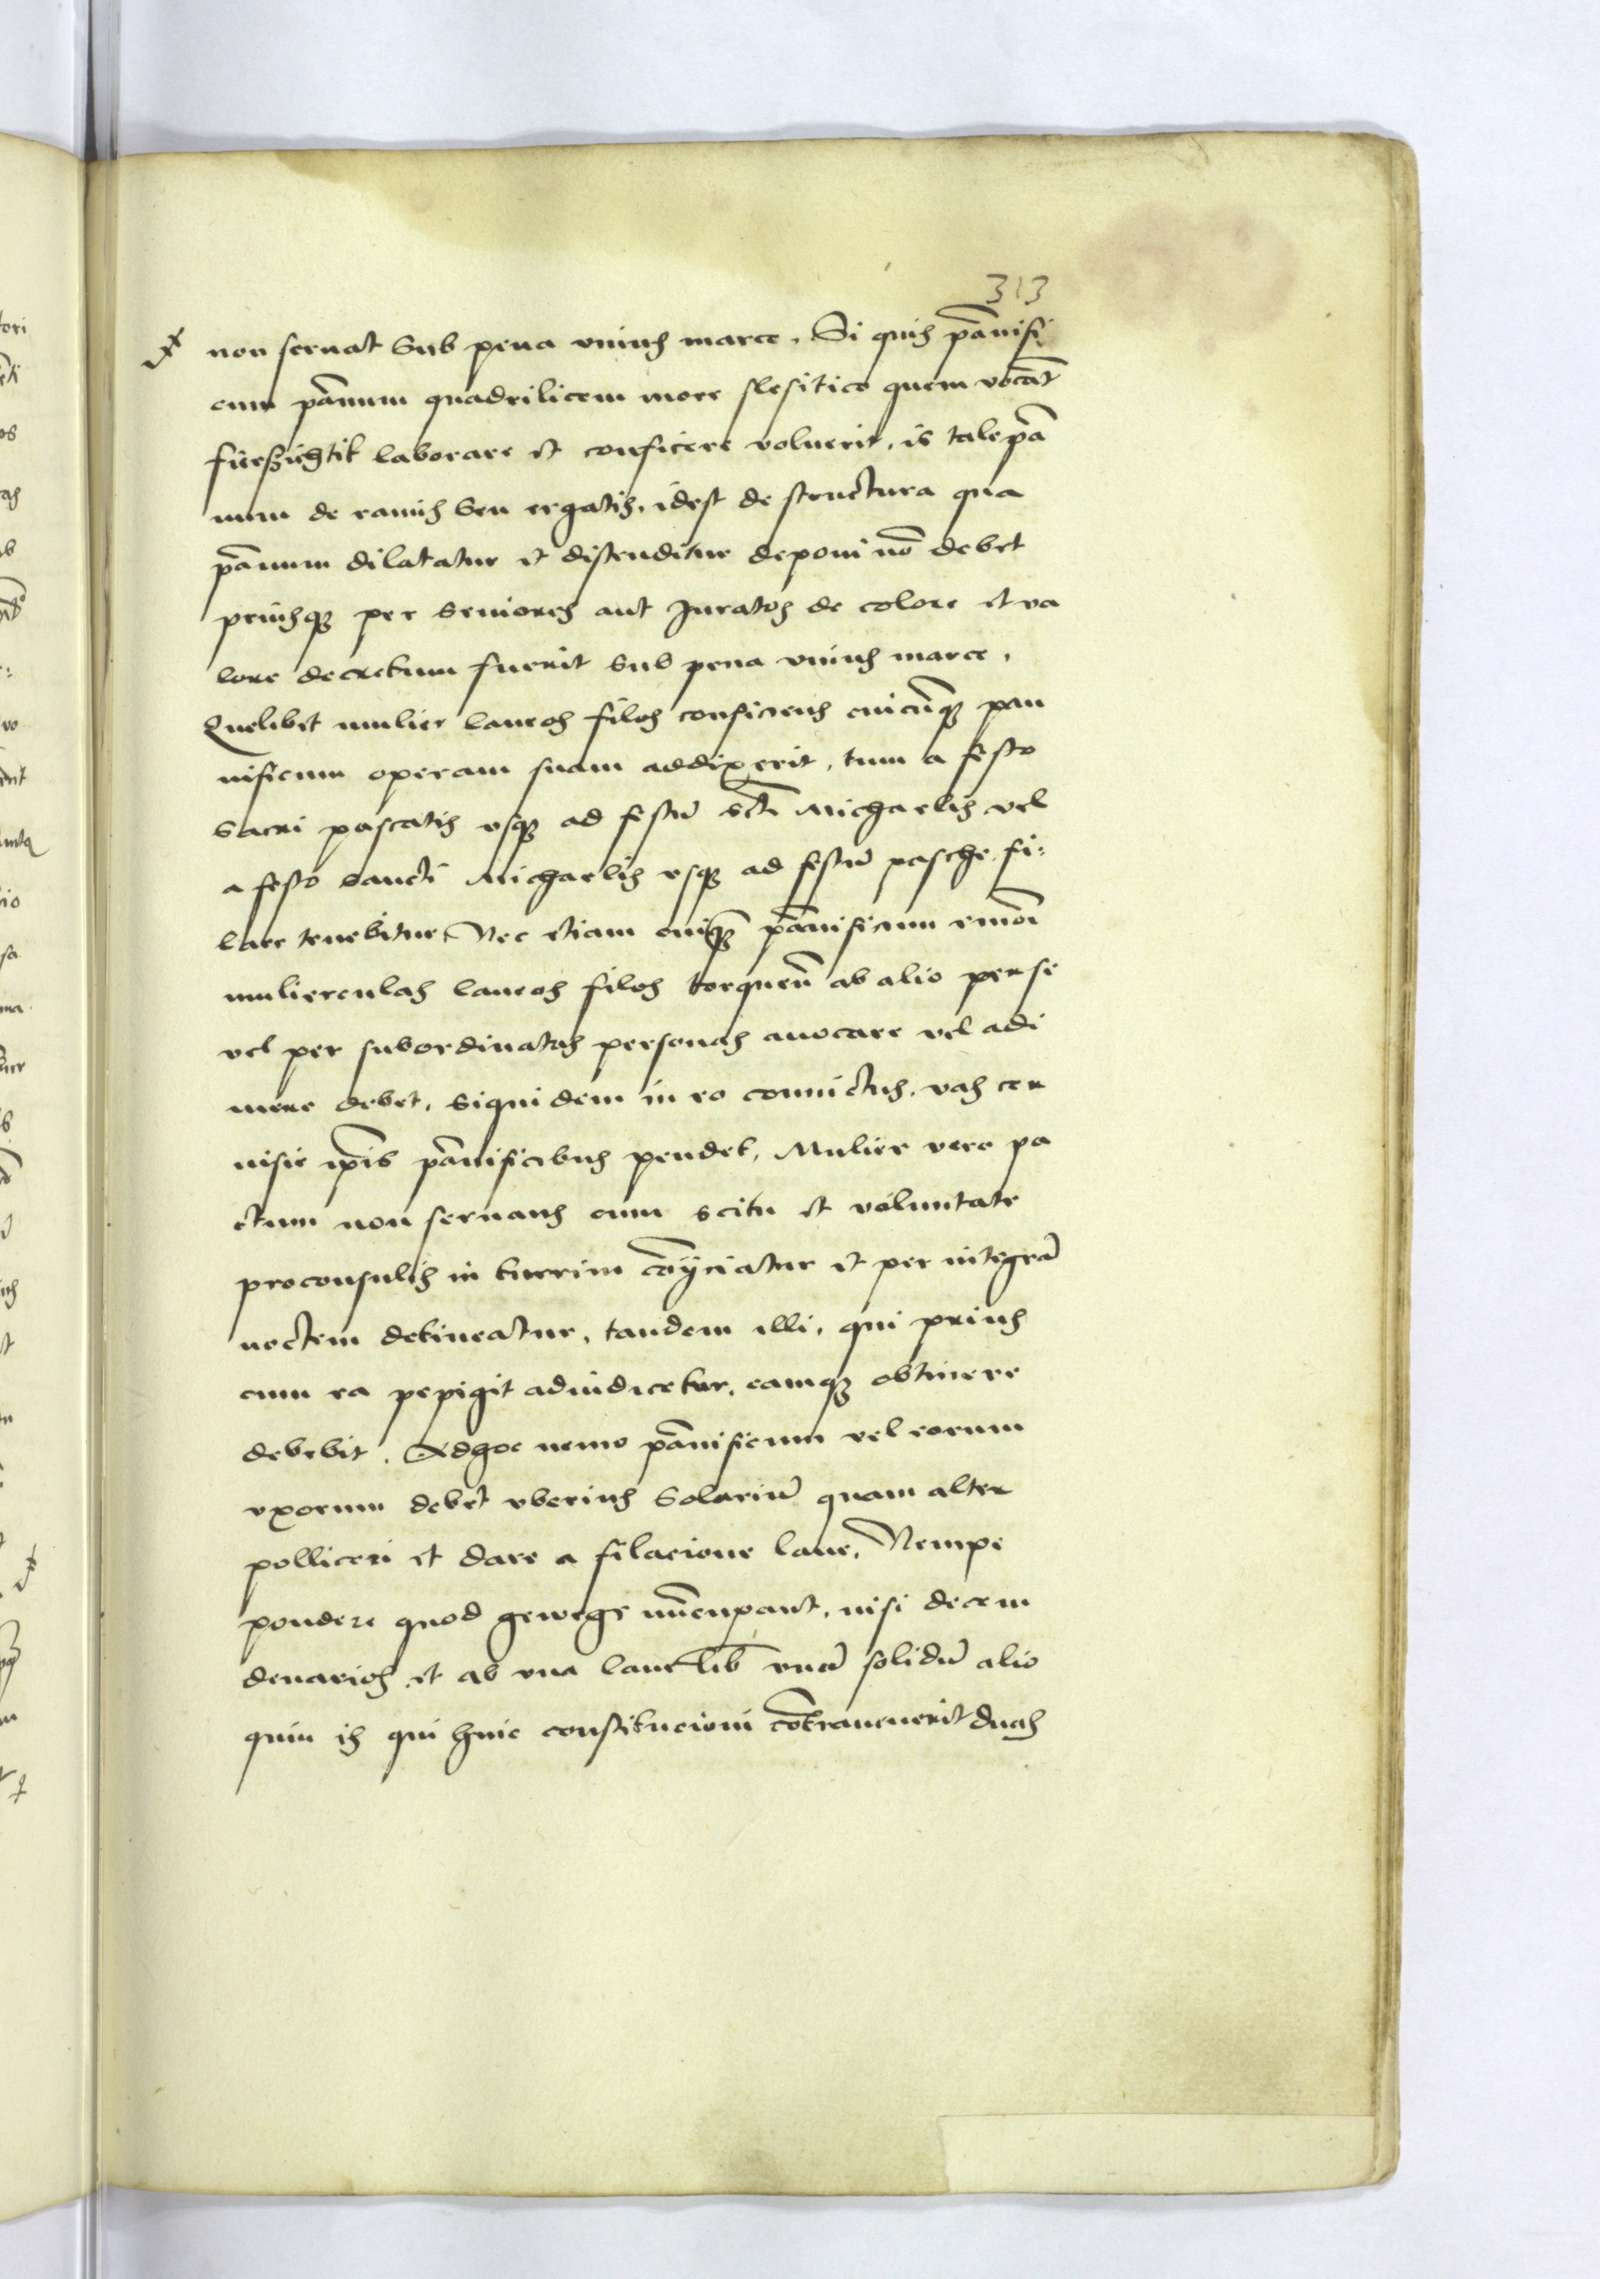 313
non seruat sub pena vnius marce. Si quis pānifi
cum pānum quadrilicem more slesitico quem vocāt
laborare et conficere voluerit, is tale pā
num de ramis seu ergatis, idest de structura qua
pānum dilatatur et distenditur deponi nō debet
priusq₃ per seniores aut Juratos de colore et va
lore decretum fuerit sub pena vnius marce.
Quelibet mulier laneos filos conficiens cuicūq₃ pan
nificum operam suam addixerit, tum a festo
sacri pascatis vsq₃ ad festū scti Michaelis vel
a festo sancti Michaelis vsq₃ ad festū pasche fi:
lare tenebitur, Nec etiam pānificum
mulierculas laneos filos torquen̄ ab alio per se
vel per subordinatas personas auocare vel adi
mere debet, siquidem in eo conuictus, vas cer
uisie ip̄is pānificibus pendet, Mulier vero pa
ctum non seruans cum scitu et voluntate
proconsulis in turrim cōijciatur et per integrā
noctem detineatur, tandem illi, qui prius
cum ea pepigit adiudicetur, eamq₃ obtinere
debebit. Adhoc nemo pānificum vel eorum
vxorum debet vberius Solariū quam alter
polliceri et dare a filacione lane, Nempe
pondere quod gewege nūcupant, nisi decem
denarios, et ab vna lane lib̄ vnū solidū alio
quin is qui huic constitucioni cōtrauenerit duas